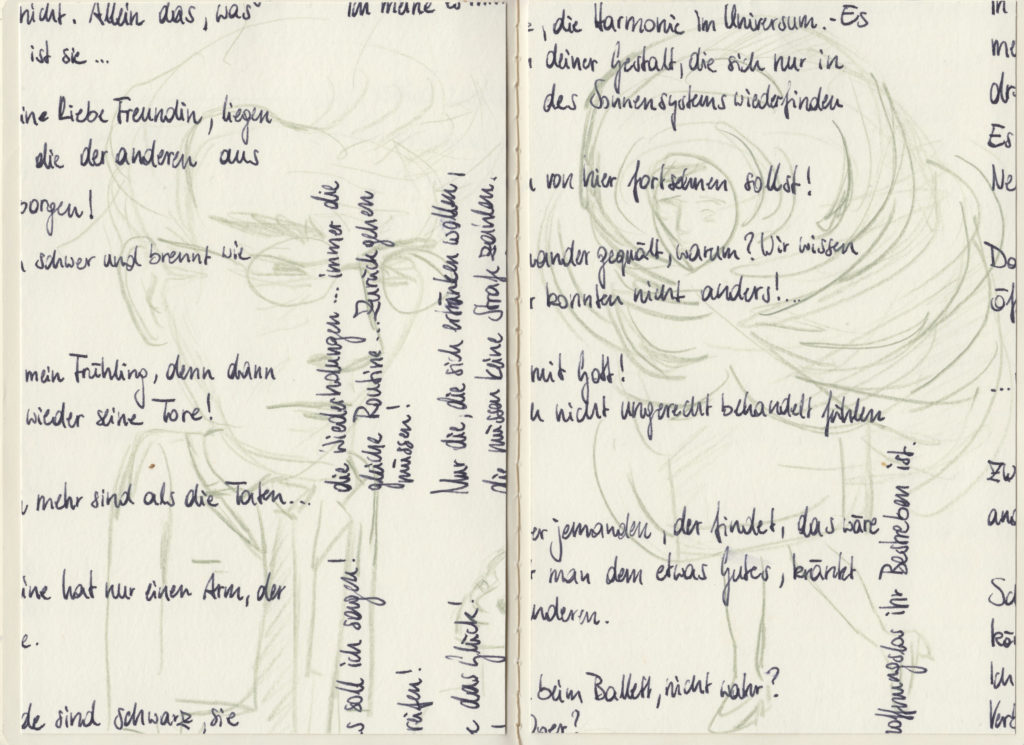 nicht. Allein das, was
ist sie ...
ine Liebe Freundin, liegen
die der anderen aus
borgen!
schwer und brennt wie
mein Frühling, denn dann
wieder seine Tore!
mehr sind als die Taten...
ine hat nur einen Arm, der
e.
de sind schwarz, sie
Im meine es
die Wiederholungen... immer die
gleiche Routine... Zurückgehen
müssen!
s soll ich sagen!
Nur die, die sich ertränken wollen,
die müssen keine Strafe zahlen.
rüfen!
e das Glück!
, die Harmonie im Universum. - Es
deiner Gestalt, die sich nur in
des Sonnensystems wiederfinden
von hier fortsehnen sollst!
nander gequält, warum? Wir wissen
r konnten nicht anders!...
mit Gott!
n nicht ungerecht behandelt fühlen
er jemanden, der findet, das wäre
r man dem etwas Gutes, kränkt
nderen.
beim Ballett, nicht wahr?
ber?
offnungslos ihr Bestreben ist.
in
me
dr
Es
Ne
Do
öf
...
zw
and
Sc
kö
Ich
Vert